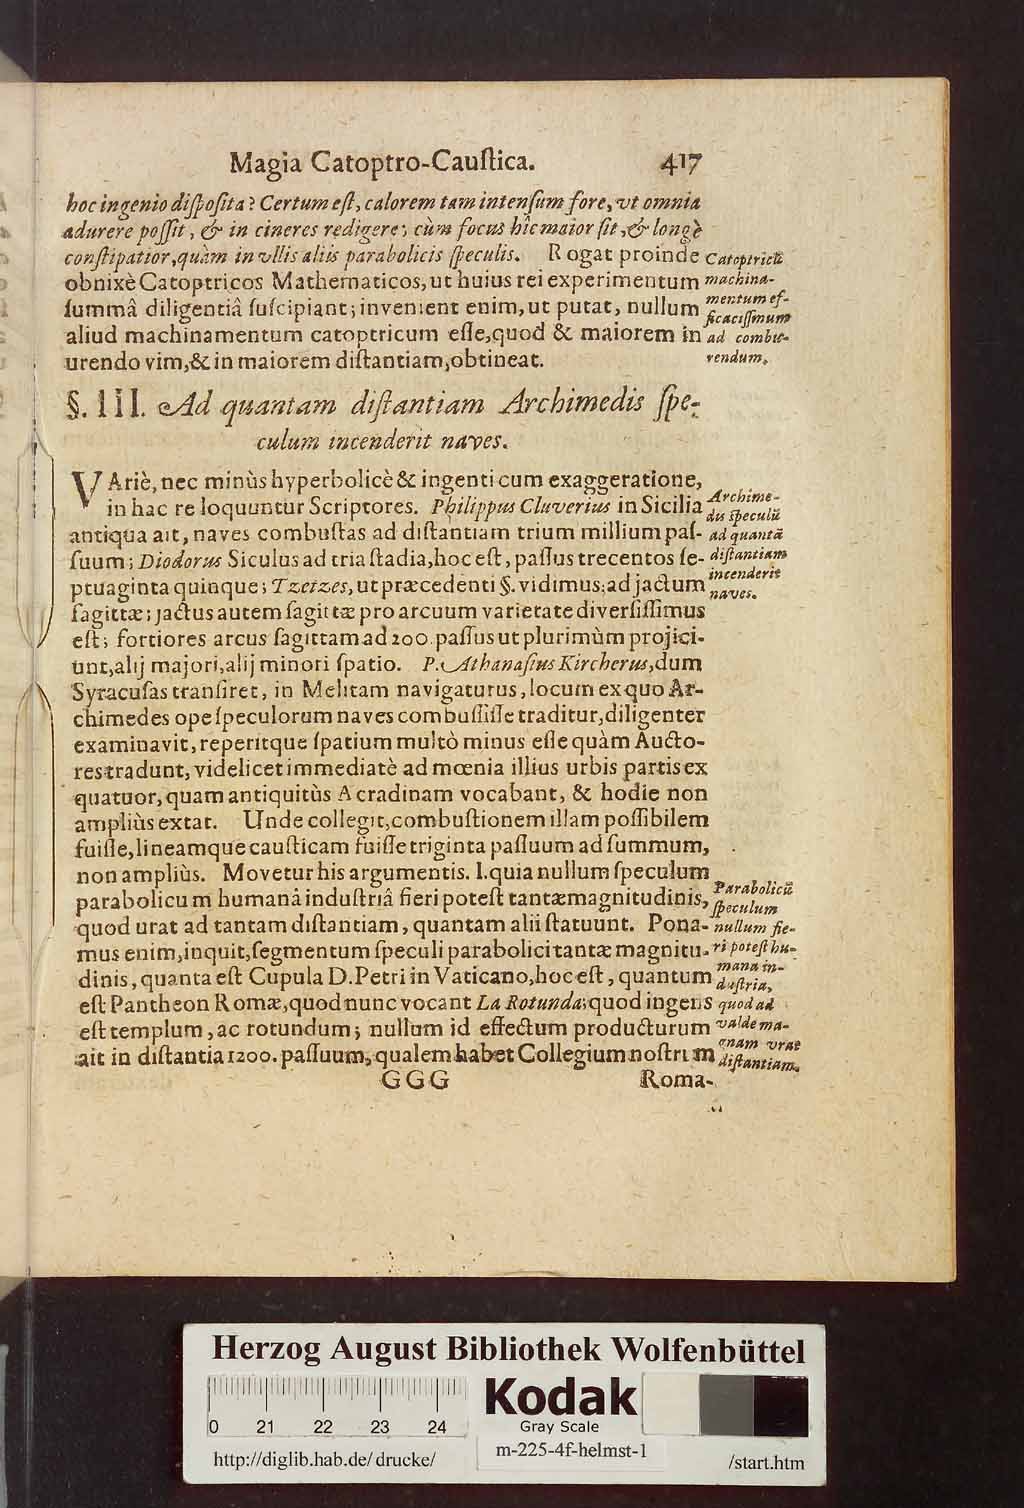 Magia Catoptro-Cauſtica. 417
hoc ingenio diſpoſita? Certum eſt, calorem tam intenſum fore, vt omnia
adurere poſſit, & in cineres redigere; cùm focus hîc maior ſit, & longè
conſtipatior, quàm in vllis aliis parabolicis ſpeculis. Rogat proinde
obnixè Catoptricos Mathematicos, ut huius rei experimentum
ſummâ diligentiâ ſuſcipiant; invenient enim, ut putat, nullum
aliud machinamentum catoptricum eſſe, quod & maiorem in
urendo vim, & in maiorem diſtantiam, obtineat.
Catoptricũ
machina-
mentum ef-
ficaciſſimum
ad combu-
rendum.
§. III. Ad quantam diſtantiam Archimedis ſpe-
culum incenderit naves.
VAriè, nec minùs hyperbolicè & ingenti cum exaggeratione,
in hac re loquuntur Scriptores. Philippus Cluverius in Sicilia
antiqua ait, naves combuſtas ad diſtantiam trium millium paſ-
ſuum; Diodorus Siculus ad tria ſtadia, hoc eſt, paſſus trecentos ſe-
ptuaginta quinque; Tzetzes, ut præcedenti §. vidimus, ad jactum
ſagittæ; jactus autem ſagittæ pro arcuum varietate diverſiſſimus
eſt; fortiores arcus ſagittam ad 200. paſſus ut plurimùm projici-
unt, alij majori, alij minori ſpatio. P. Athanaſius Kircherus, dum
Syracuſas tranſiret, in Melitam navigaturus, locum ex quo Ar-
chimedes ope ſpeculorum naves combuſſiſſe traditur, diligenter
examinavit, reperitque ſpatium multò minus eſſe quàm Aucto-
res tradunt, videlicet immediatè ad mœnia illius urbis partis ex
quatuor, quam antiquitùs Acradinam vocabant, & hodie non
ampliùs extat. Unde collegit, combuſtionem illam poſſibilem
fuiſſe, lineamque cauſticam fuiſſe triginta paſſuum ad ſummum,
non ampliùs. Movetur his argumentis. I. quia nullum ſpeculum
parabolicum humanâ induſtriâ fieri poteſt tantæ magnitudinis,
quod urat ad tantam diſtantiam, quantam alii ſtatuunt. Pona-
mus enim, inquit, ſegmentum ſpeculi parabolici tantæ magnitu-
dinis, quanta eſt Cupula D. Petri in Vaticano, hoc eſt, quantum
eſt Pantheon Romæ, quod nunc vocant La Rotunda; quod ingens
eſt templum, ac rotundum; nullum id effectum producturum
ait in diſtantia 1200. paſſuum, qualem habet Collegium noſtrum
Archime-
dis ſpeculũ
ad quantã
diſtantiam
incenderit
naves.
Parabolicũ
ſpeculum
nullum fie-
ri poteſt hu-
mana in-
duſtria,
quod ad
valde ma-
gnam vrat
diſtantiam.
GGG Roma-
Herzog August Bibliothek Wolfenbüttel
0 21 22 23 24
Kodak
Gray Scale
m-225-4f-helmst-1
http://diglib.hab.de/drucke/ /start.htm